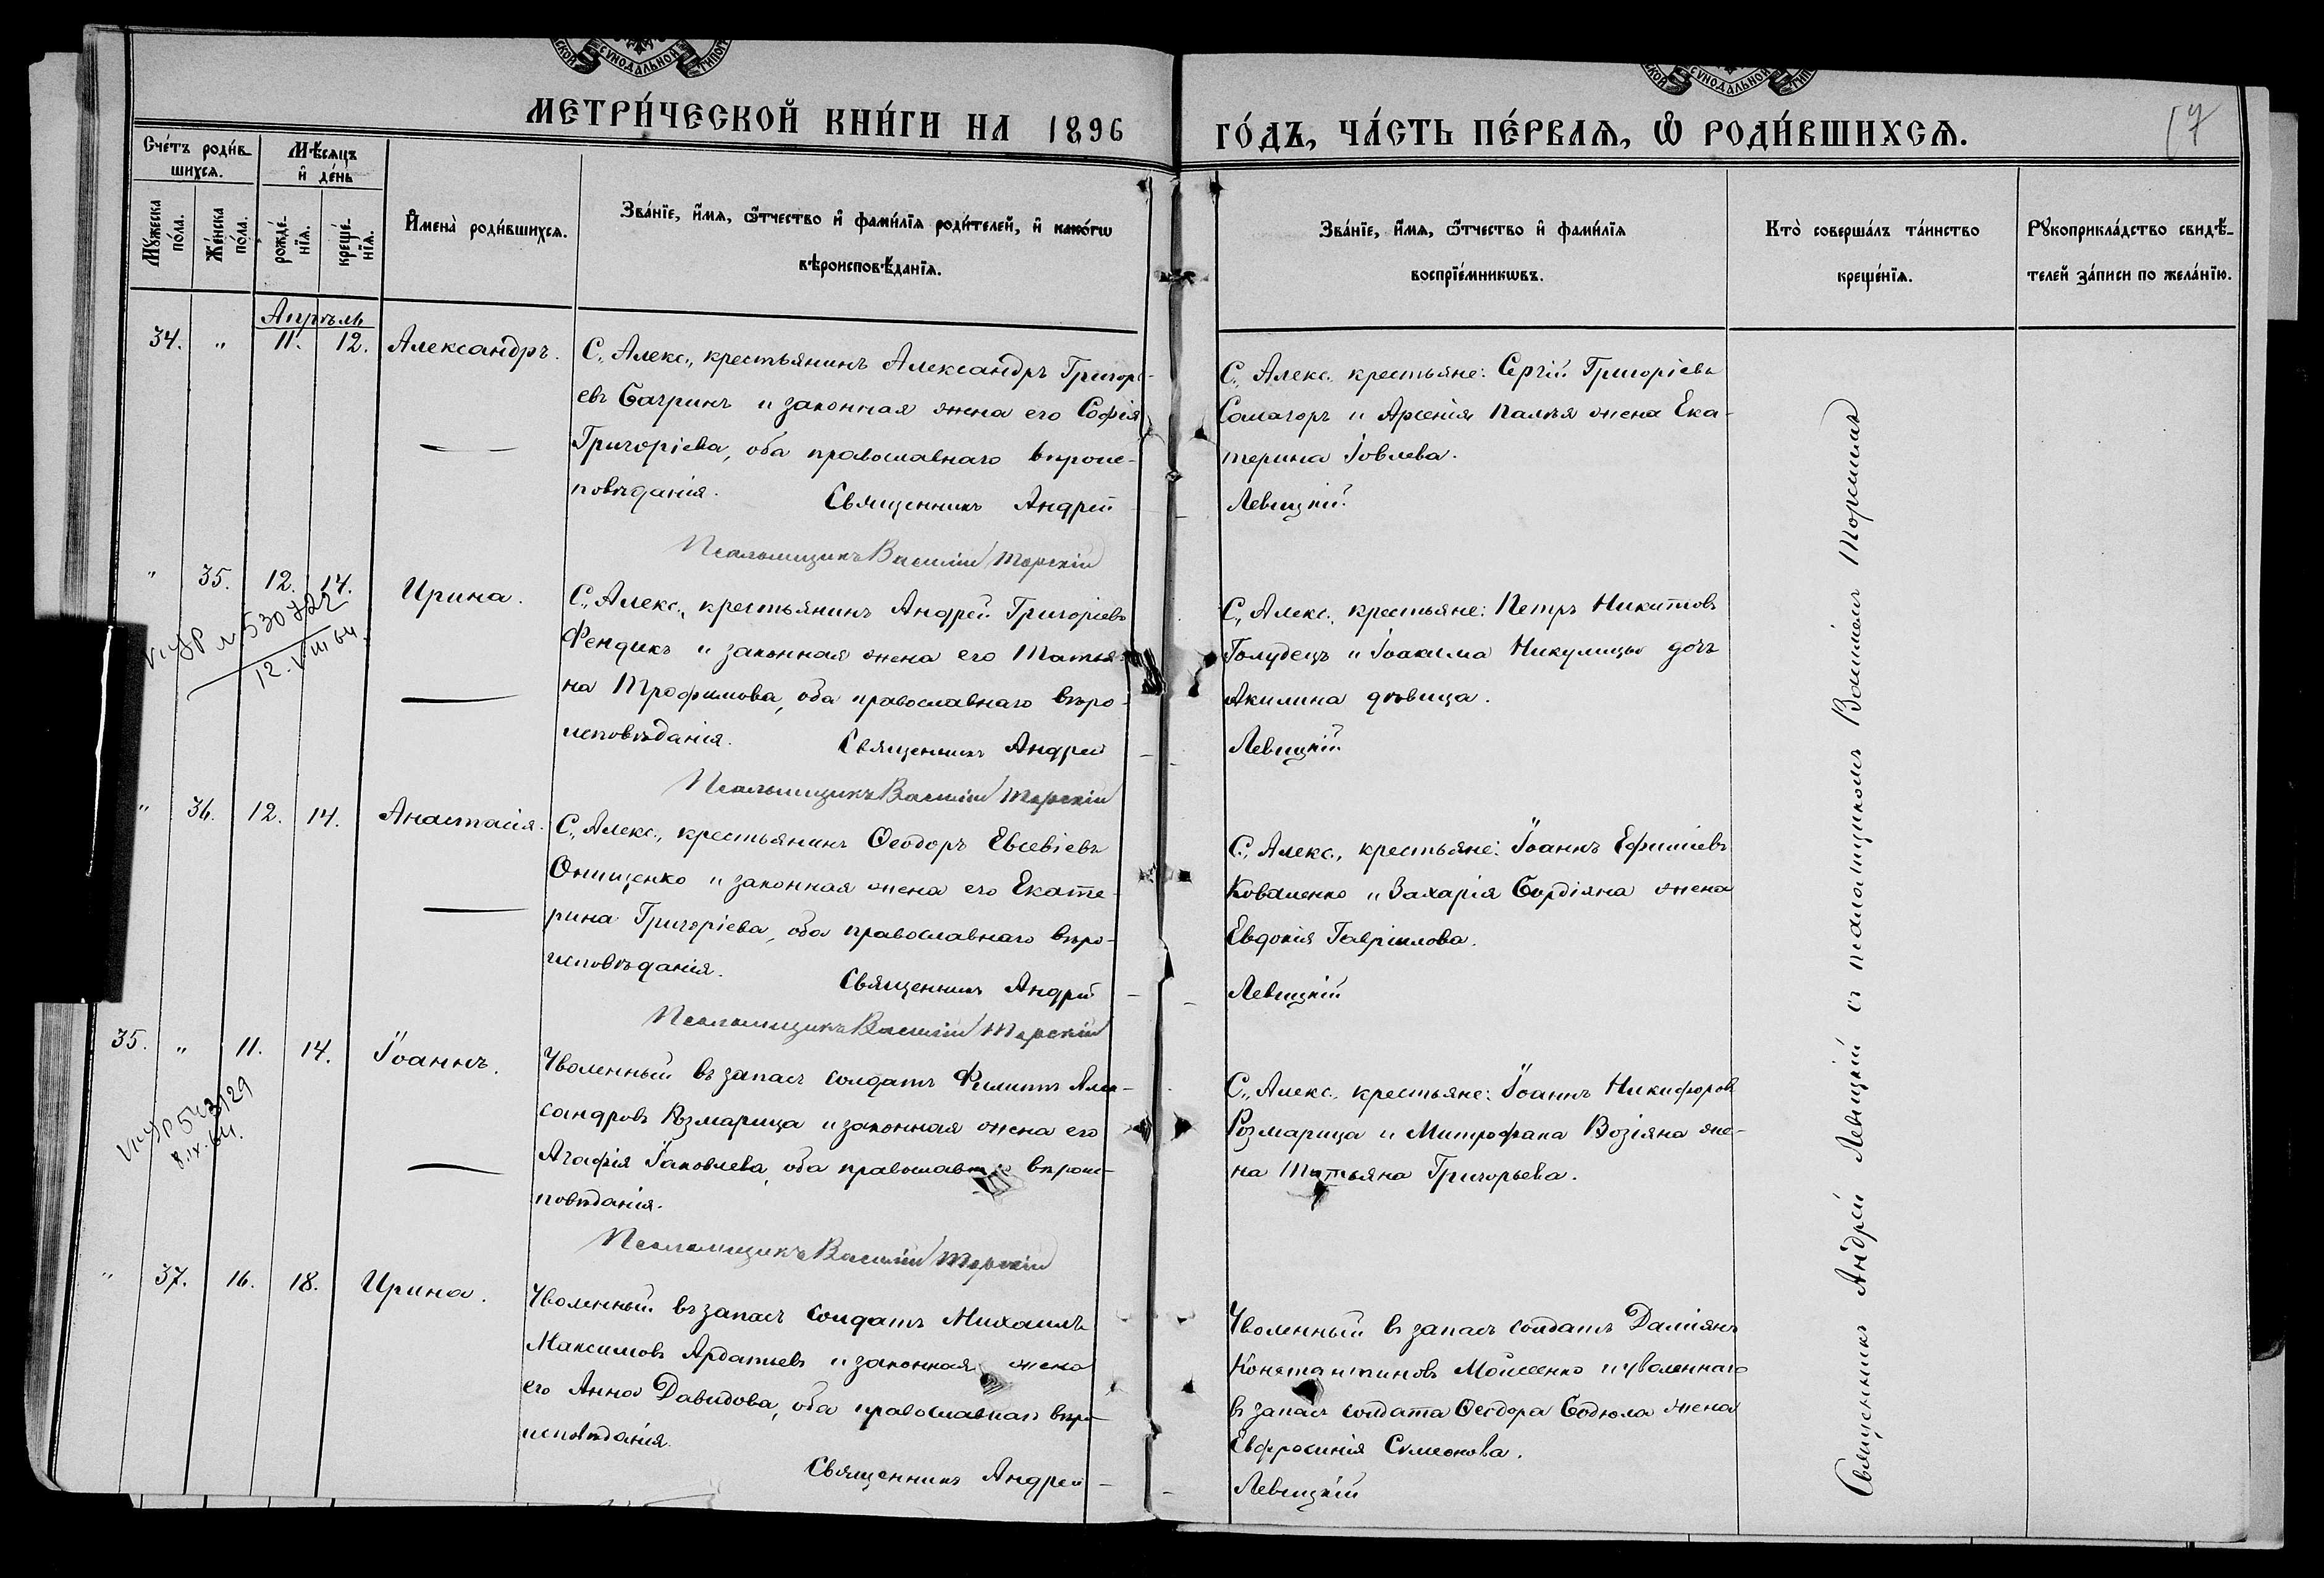 СУНОДАЛЬНОЙ
СУНОДАЛЬНОЙ
МЕТРИ́ЧЕСКОЙ КНИ́ГИ НА 1896 ГО́ДЪ, ЧА́СТЬ ПЕ́РВАѦ, Ѡ РОДИ́ВШИХСѦ.
17
Сче́тъ роди́в-
шихсѧ.
Мѣ́сяцъ
и де́нь
Му́жеска
по́ла.
Же́нска
по́ла.
рожде́-
нїѧ.
креще́-
нїѧ.
Имена̀ роди́вшихсѧ.
Зва́нїе, и́мѧ, ѻ́тчество и фами́лїѧ роди́телей, и како́гѡ
вѣроисповѣ́данїѧ.
Зва́нїе, и́мѧ, ѻ́тчество и фами́лїѧ
воспрїе́мникѡвъ.
Кто̀ соверша́лъ та́инство
креще́нїѧ.
Рꙋкоприкла́дство свидѣ́-
телей за́писи по жела́нїю.
Апрѣль
34. " 11. 12. Александръ.
С., Алекс., крестьянинъ Александръ Григорі-
евъ Багринъ и законная жена его Софія
Григорієва, оба православнаго вѣроис-
повѣданія.
Священникъ Андрей
Псаломщикъ Василій Торскій
С., Алекс. крестьяне: Сергій Григоріевъ
Самагоръ и Арсенія Палѣя жена Ека-
терина Іовлева.
Левицкій
" 35. 12. 14. Ирина.
530722
12. VIII 64.
С., Алекс., крестьянинъ Андрей Григоріевъ
Фендикъ и законная жена его Татья-
на Трофимова, оба православнаго вѣро-
исповѣданія.
Священникъ Андрей
Псаломщикъ Василій Торскій
С., Алекс., крестьяне: Петръ Никитовъ
Голубецъ и Іоакима Никулицы дочь
Акилина дѣвица.
Левицкій
" 36. 12. 14. Анастасія.
С., Алекс., крестьянинъ Ѳеодоръ Евсевіевъ
Онищенко и законная жена его Екате-
рина Григоріева, оба православнаго вѣро-
исповѣданія.
Священникъ Андрей
Псаломщикъ Василій Торскій
С., Алекс., крестьяне: Іоаннъ Ефиміевъ
Коваленко и Захарія Бордіяна жена
Евдокія Гавріилова.
Левицкій
35. " 11. 14. Іоаннъ.
543129
8. IX. 64.
Уволенный въ запасъ солдатъ Филиппъ Алек-
сандровъ Розмарица и законная жена его
Агафія Іаковлева, оба православн вѣроис-
повѣданія.
Псаломщикъ Василій Торскій
С., Алекс., крестьяне: Іоаннъ Никифоровъ
Розмарица и Митрофана Возіяна же-
на Татьяна Григорьева.
" 37. 16. 18. Ирина.
Уволенный въ запасъ солдатъ Михаилъ
Максимовъ Ардатьевъ и законная жена
его Анна Давидова, оба православнаго вѣро-
исповѣданія.
Священникъ Андрей
Уволенный въ запасъ солдатъ Даміянъ
Константиновъ Моисеенко и уволеннаго
въ запасъ солдата Ѳеодора Бодюла жена
Евфросинія Симеонова.
Левицкій
Священникъ Андрей Левицкій с псаломщикомъ Василіемъ Торскимъ